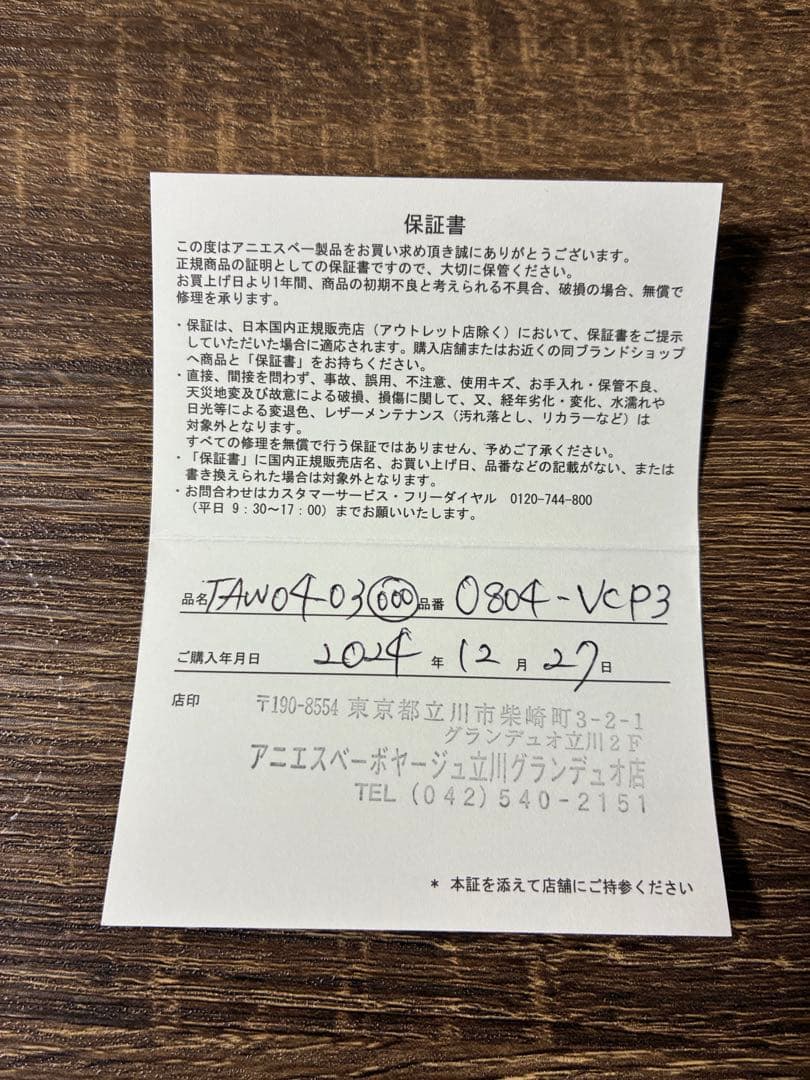 保証書
この度はアニエスベー製品をお買い求め頂き誠にありがとうございます。
正規商品の証明としての保証書ですので、大切に保管ください。
お買上げ日より1年間、商品の初期不良と考えられる不具合、破損の場合、無償で
修理を承ります。
・保証は、日本国内正規販売店（アウトレット店除く）において、保証書をご提示
していただいた場合に適応されます。購入店舗またはお近くの同ブランドショップ
へ商品と「保証書」をお持ちください。
・直接、間接を問わず、事故、誤用、不注意、使用キズ、お手入れ・保管不良、
天災地変及び故意による破損、損傷に関して、又、経年劣化・変化、水濡れや
日光等による変退色、レザーメンテナンス（汚れ落とし、リカラーなど）は
対象外となります。
すべての修理を無償で行う保証ではありません、予めご了承ください。
・「保証書」に国内正規販売店名、お買い上げ日、品番などの記載がない、または
書き換えられた場合は対象外となります。
・お問合わせはカスタマーサービス・フリーダイヤル 0120-744-800
（平日 9：30～17：00）までお願いいたします。
品名 TAW04-03 000 品番 0804-VCP3
ご購入年月日 2024 年 12 月 27 日
店印 〒190-8554 東京都立川市柴崎町3-2-1
グランデュオ立川2F
アニエスベーボヤージュ立川グランデュオ店
TEL (042) 540-2151
* 本証を添えて店舗にご持参ください